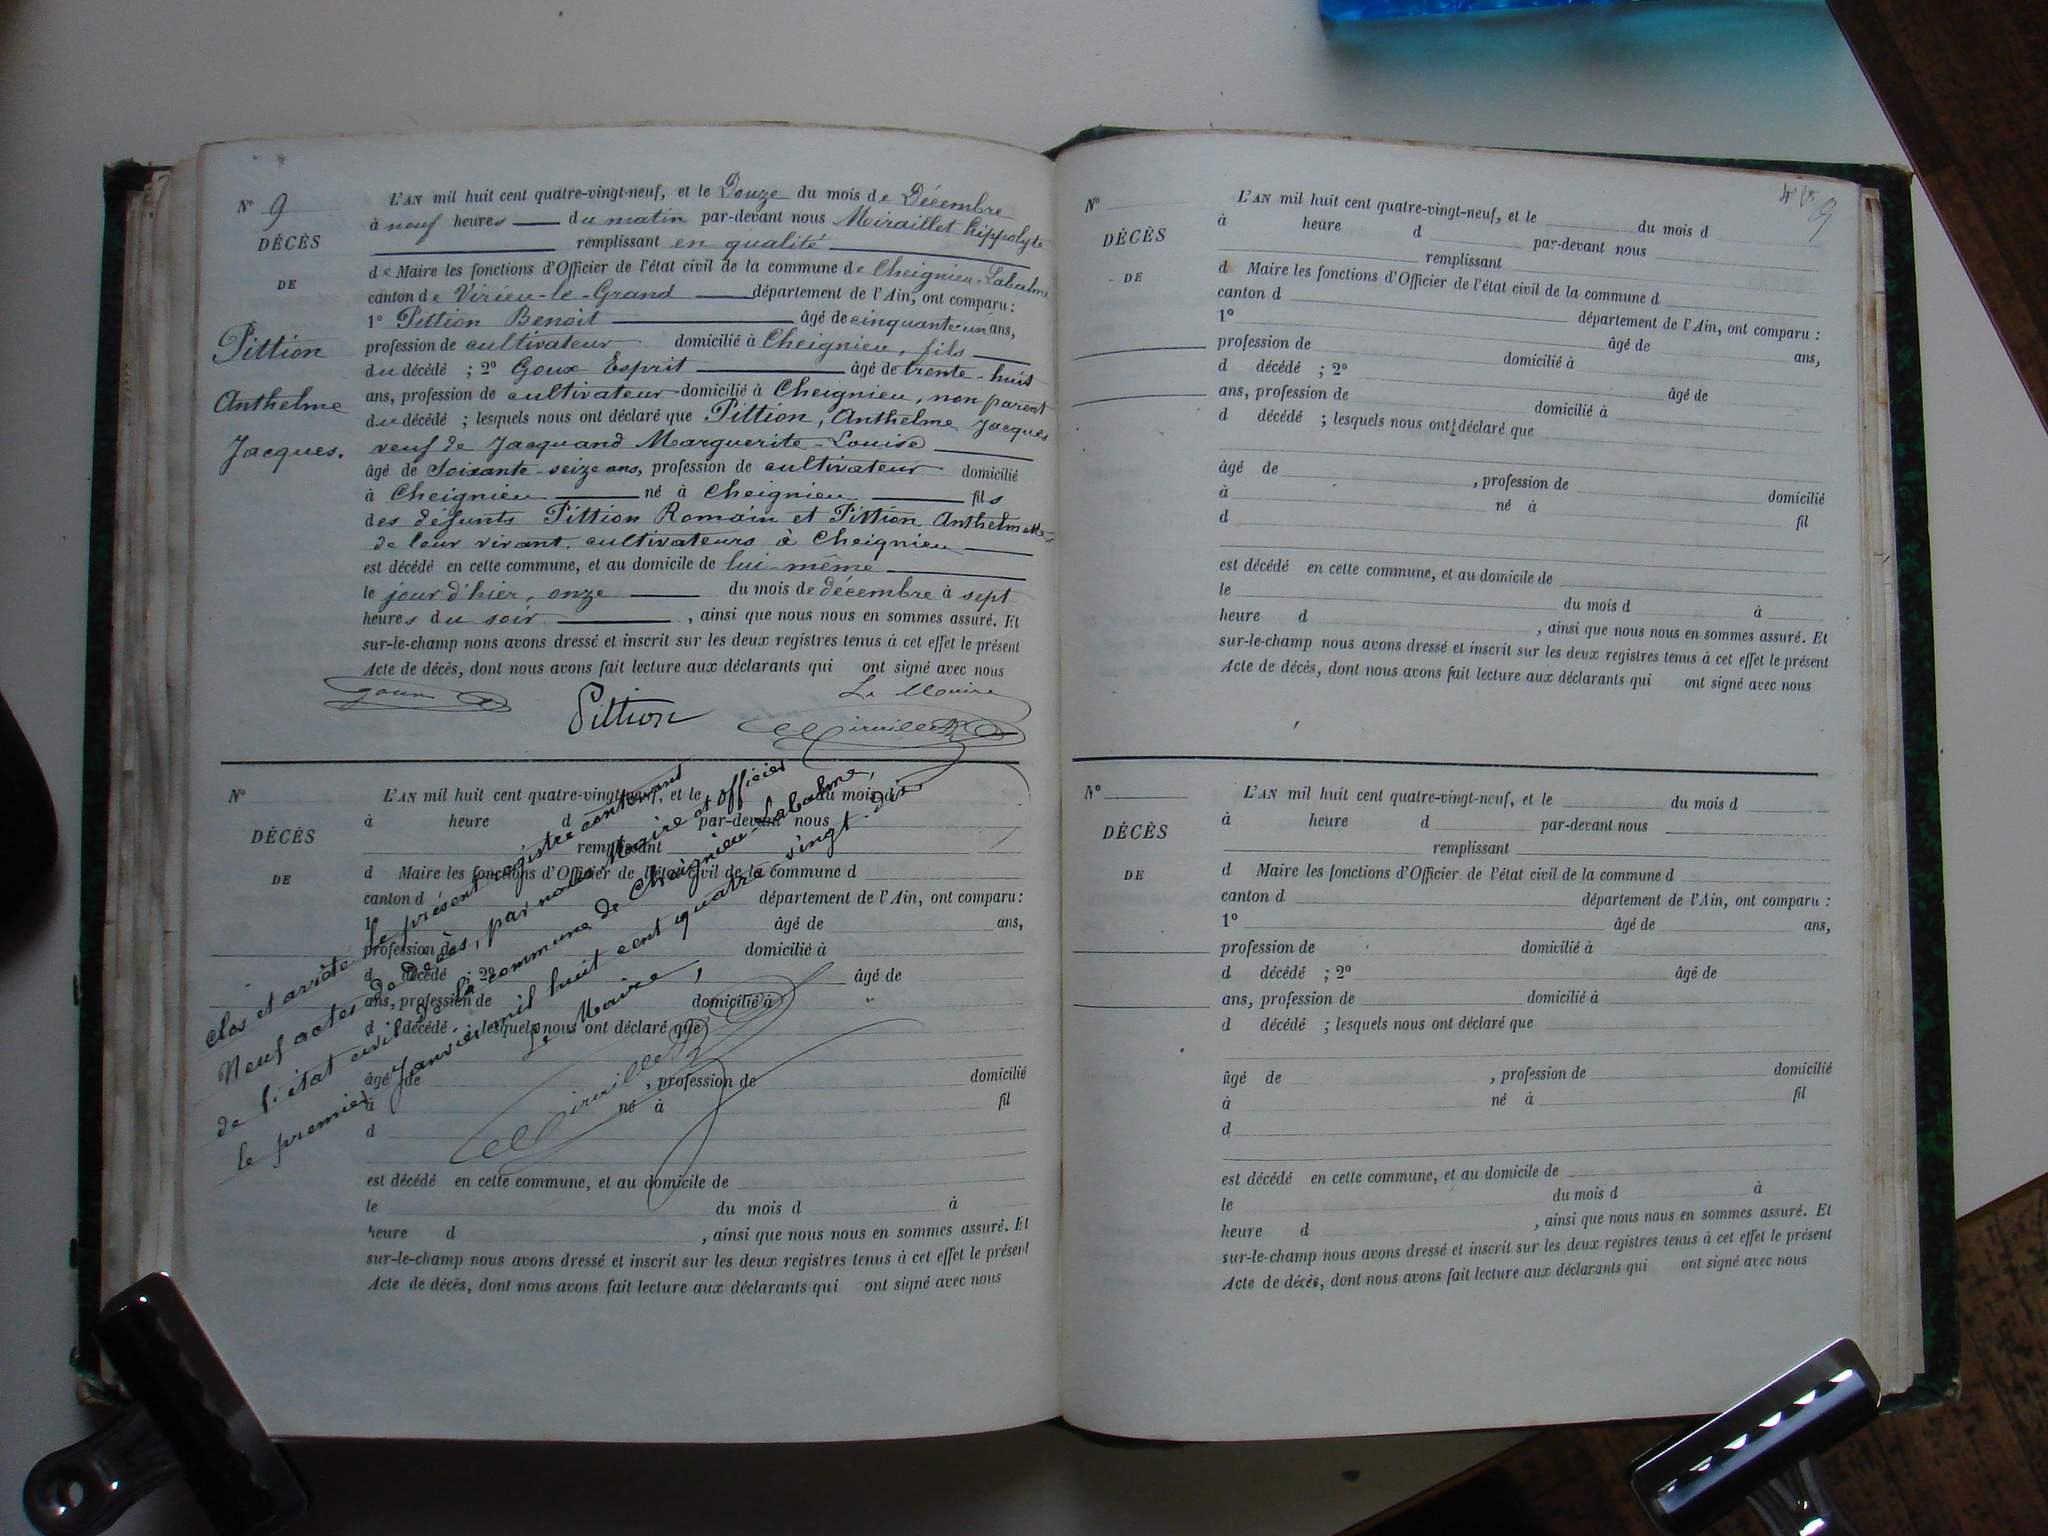 N° 9
DÉCÈS
DE
Pittion
Anthelme
Jacques.
L'AN mil huit cent quatre-vingt-neuf, et le Douze du mois de Décembre
à neuf heures du matin par-devant nous Miraillet Hippolyte
remplissant en qualité
de Maire les fonctions d'Officier de l'état civil de la commune de Cheignieu-Labalme
canton de Virieu-le-Grand département de l'Ain, ont comparu :
1° Pittion Benoit âgé de cinquante un ans,
profession de cultivateur domicilié à Cheignieu, fils
du décédé ; 2° Goux Esprit âgé de trente-huit
ans, profession de cultivateur domicilié à Cheignieu, non parent
du décédé ; lesquels nous ont déclaré que Pittion, Anthelme Jacques
veuf de Jacquand Marguerite-Louise
âgé de Soixante-seize ans, profession de cultivateur domicilié
à Cheignieu né à Cheignieu fils
des défunts Pittion Romain et Pittion Anthelmette
de leur vivant cultivateurs à Cheignieu
est décédé en cette commune, et au domicile de lui-même
le jour d'hier, onze du mois de décembre à sept
heures du soir , ainsi que nous nous en sommes assuré. Et
sur-le-champ nous avons dressé et inscrit sur les deux registres tenus à cet effet le présent
Acte de décès, dont nous avons fait lecture aux déclarants qui ont signé avec nous
Goux Pittion Le Maire
Miraillet
N°
DÉCÈS
DE
L'AN mil huit cent quatre-vingt-neuf, et le du mois d
à heure d par-devant nous
remplissant
d Maire les fonctions d'Officier de l'état civil de la commune d
canton d département de l'Ain, ont comparu :
1° âgé de ans,
profession de domicilié à
d décédé ; 2° âgé de
ans, profession de domicilié à
d décédé ; lesquels nous ont déclaré que
âgé de , profession de domicilié
à né à fil
d
est décédé en cette commune, et au domicile de
le du mois d à
heure d , ainsi que nous nous en sommes assuré. Et
sur-le-champ nous avons dressé et inscrit sur les deux registres tenus à cet effet le présent
Acte de décès, dont nous avons fait lecture aux déclarants qui ont signé avec nous
Clos et arrêté le présent registre contenant
Neuf actes de Décès, par nous Maire et officier
de l'état civil de la commune de Cheignieu-Labalme,
le premier Janvier mil huit cent quatre vingt-dix
Le Maire,
Miraillet
N°
DÉCÈS
DE
L'AN mil huit cent quatre-vingt-neuf, et le du mois d
à heure d par-devant nous
remplissant
d Maire les fonctions d'Officier de l'état civil de la commune d
canton d département de l'Ain, ont comparu :
1° âgé de ans,
profession de domicilié à
d décédé ; 2° âgé de
ans, profession de domicilié à
d décédé ; lesquels nous ont déclaré que
âgé de , profession de domicilié
à né à fil
d
est décédé en cette commune, et au domicile de
le du mois d à
heure d , ainsi que nous nous en sommes assuré. Et
sur-le-champ nous avons dressé et inscrit sur les deux registres tenus à cet effet le présent
Acte de décès, dont nous avons fait lecture aux déclarants qui ont signé avec nous
N°
DÉCÈS
DE
L'AN mil huit cent quatre-vingt-neuf, et le du mois d
à heure d par-devant nous
remplissant
d Maire les fonctions d'Officier de l'état civil de la commune d
canton d département de l'Ain, ont comparu :
1° âgé de ans,
profession de domicilié à
d décédé ; 2° âgé de
ans, profession de domicilié à
d décédé ; lesquels nous ont déclaré que
âgé de , profession de domicilié
à né à fil
d
est décédé en cette commune, et au domicile de
le du mois d à
heure d , ainsi que nous nous en sommes assuré. Et
sur-le-champ nous avons dressé et inscrit sur les deux registres tenus à cet effet le présent
Acte de décès, dont nous avons fait lecture aux déclarants qui ont signé avec nous